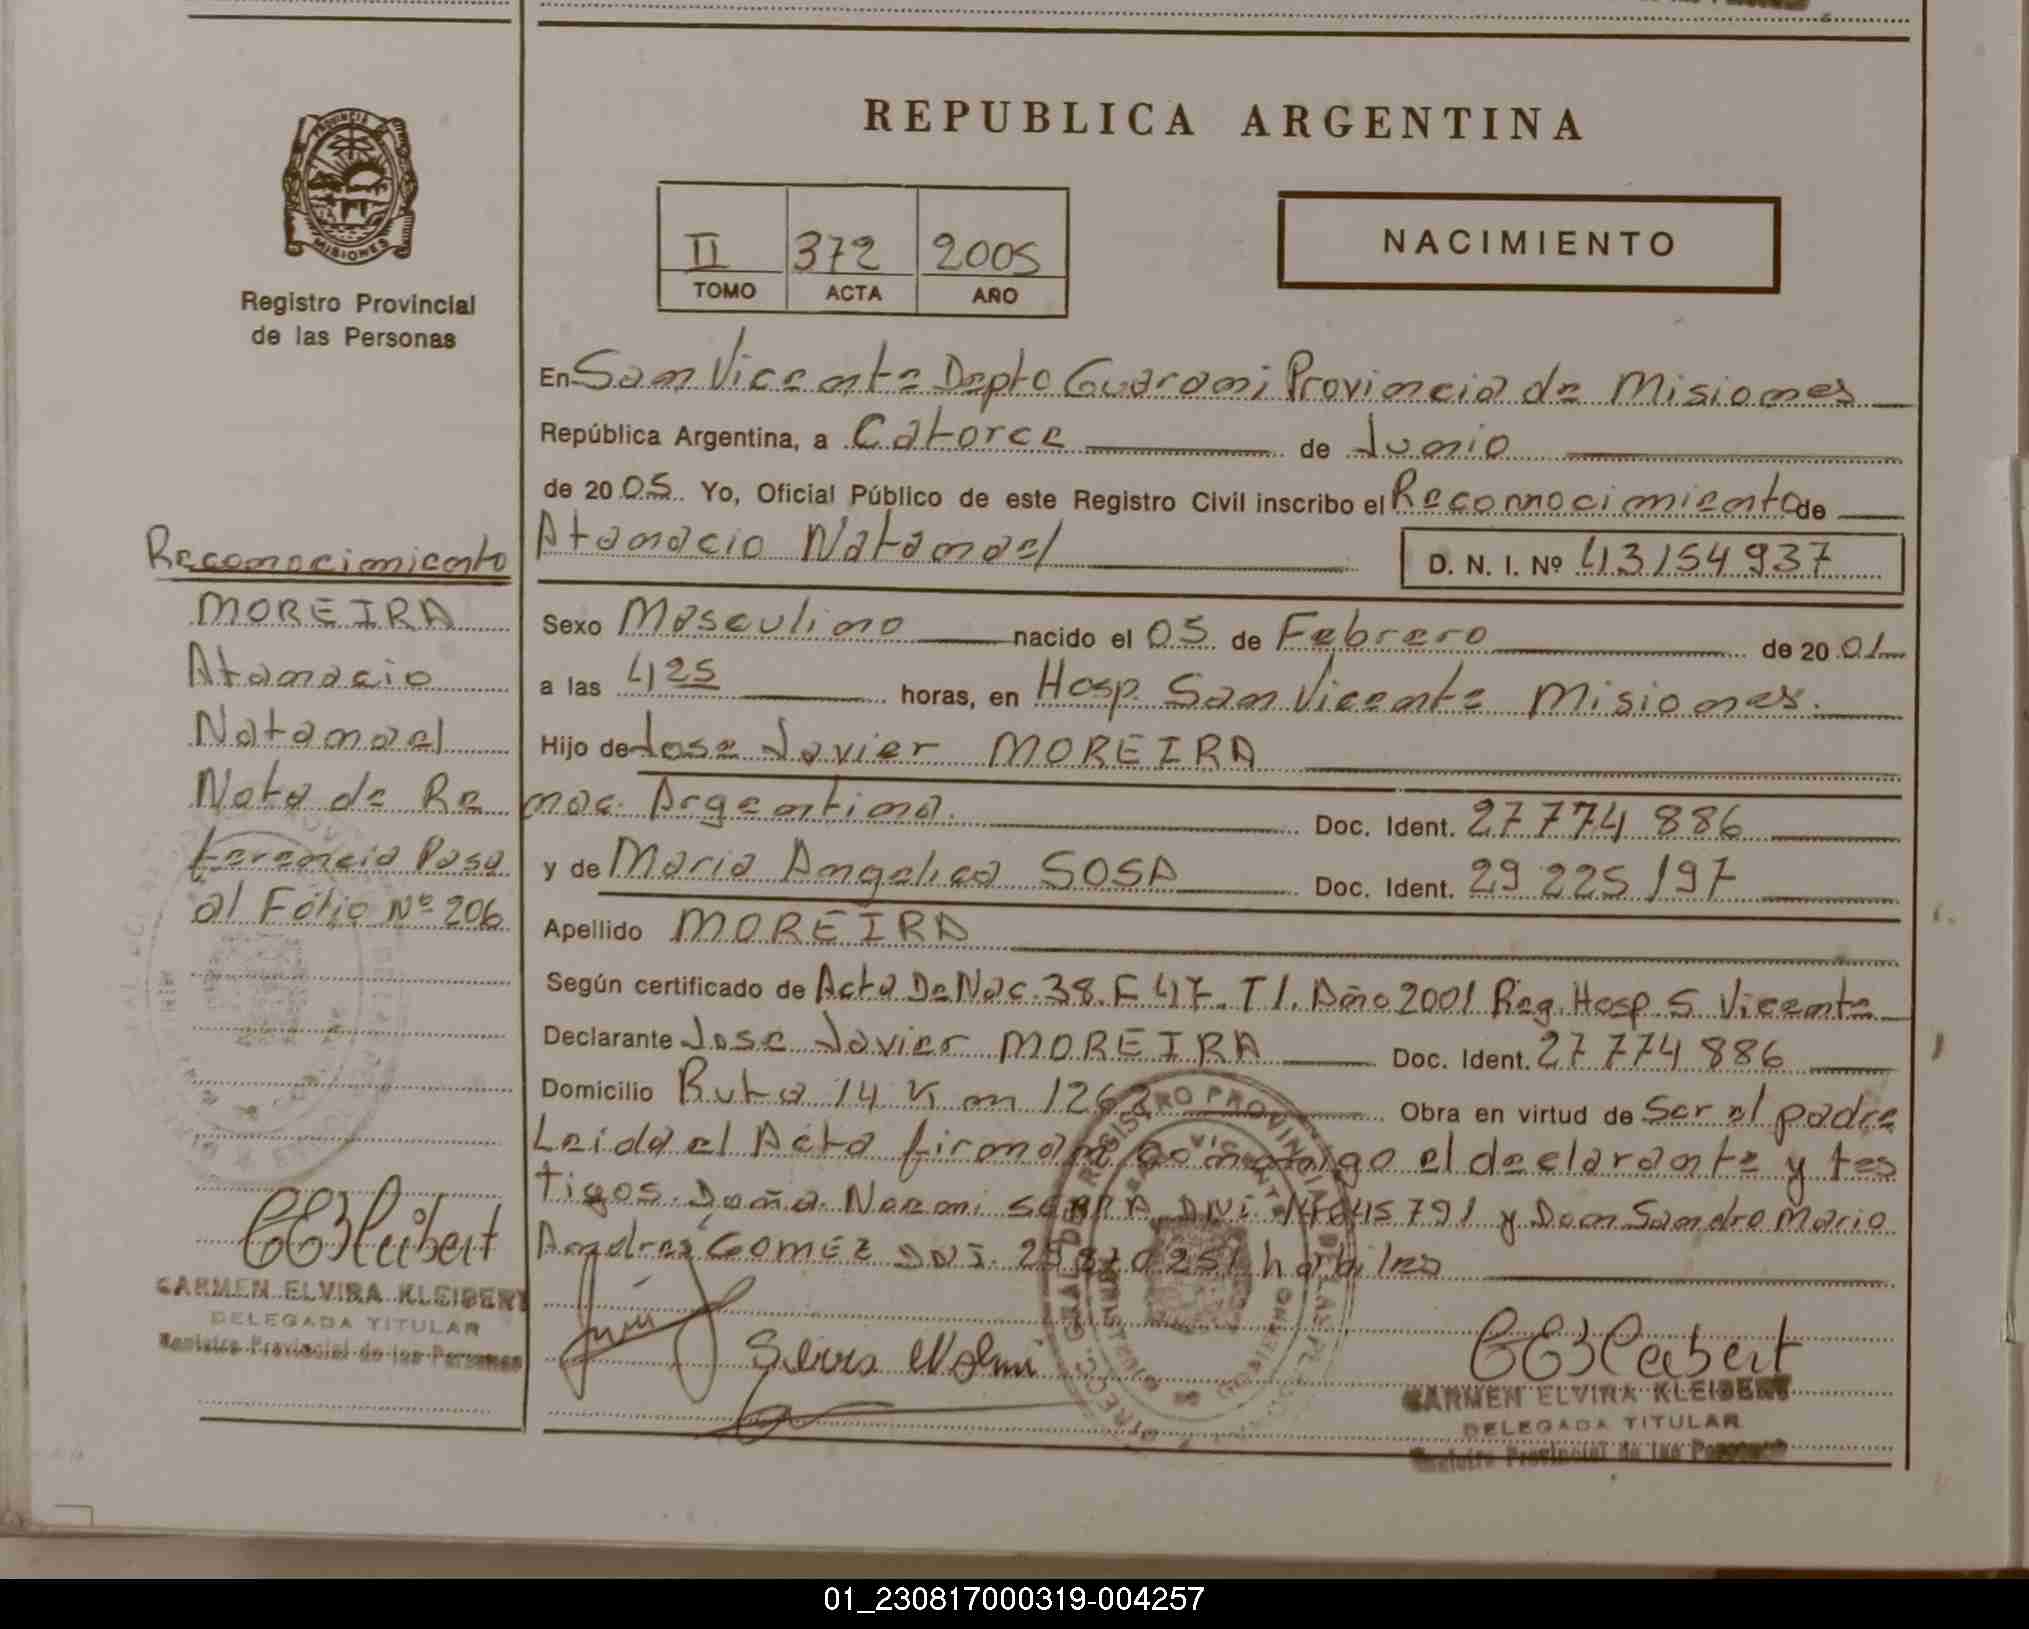 REPUBLICA ARGENTINA
PROVINCIA DE
MISIONES
Registro Provincial
de las Personas
II 372 2005
TOMO ACTA AÑO
NACIMIENTO
En San Vicente Depto Guarani Provincia de Misiones
República Argentina, a Catorce de Junio
de 2005. Yo, Oficial Público de este Registro Civil inscribo el Reconocimiento de
Atanacio Natanael D. N. I. Nº 43154937
Sexo Masculino nacido el 05 de Febrero de 2001
a las 4,25 horas, en Hosp. San Vicente Misiones.
Hijo de Jose Javier MOREIRA
nac. Argentina. Doc. Ident. 27774886
y de Maria Angelica SOSA Doc. Ident. 29225197
Apellido MOREIRA
Según certificado de Acta De Nac. 38. F 47. T1. Año 2001 Reg. Hosp. S. Vicente
Declarante Jose Javier MOREIRA Doc. Ident. 27774886
Domicilio Ruta 14 Km 1262 Obra en virtud de Ser el padre
Leida el Acta firman conmigo el declarante y tes
tigos. Doña Noemi DNI y Don Sandro Mario
Andres GOMEZ DNI. habiles
CARMEN ELVIRA KLEIBERT
DELEGADA TITULAR
Registro Provincial de las Personas
Reconocimiento
MOREIRA
Atanacio
Natanael
Nota de Re
ferencia Pasa
al Fólio Nº 206
CEKleibert
CARMEN ELVIRA KLEIBERT
DELEGADA TITULAR
Registro Provincial de las Personas
CEKleibert
01_230817000319-004257